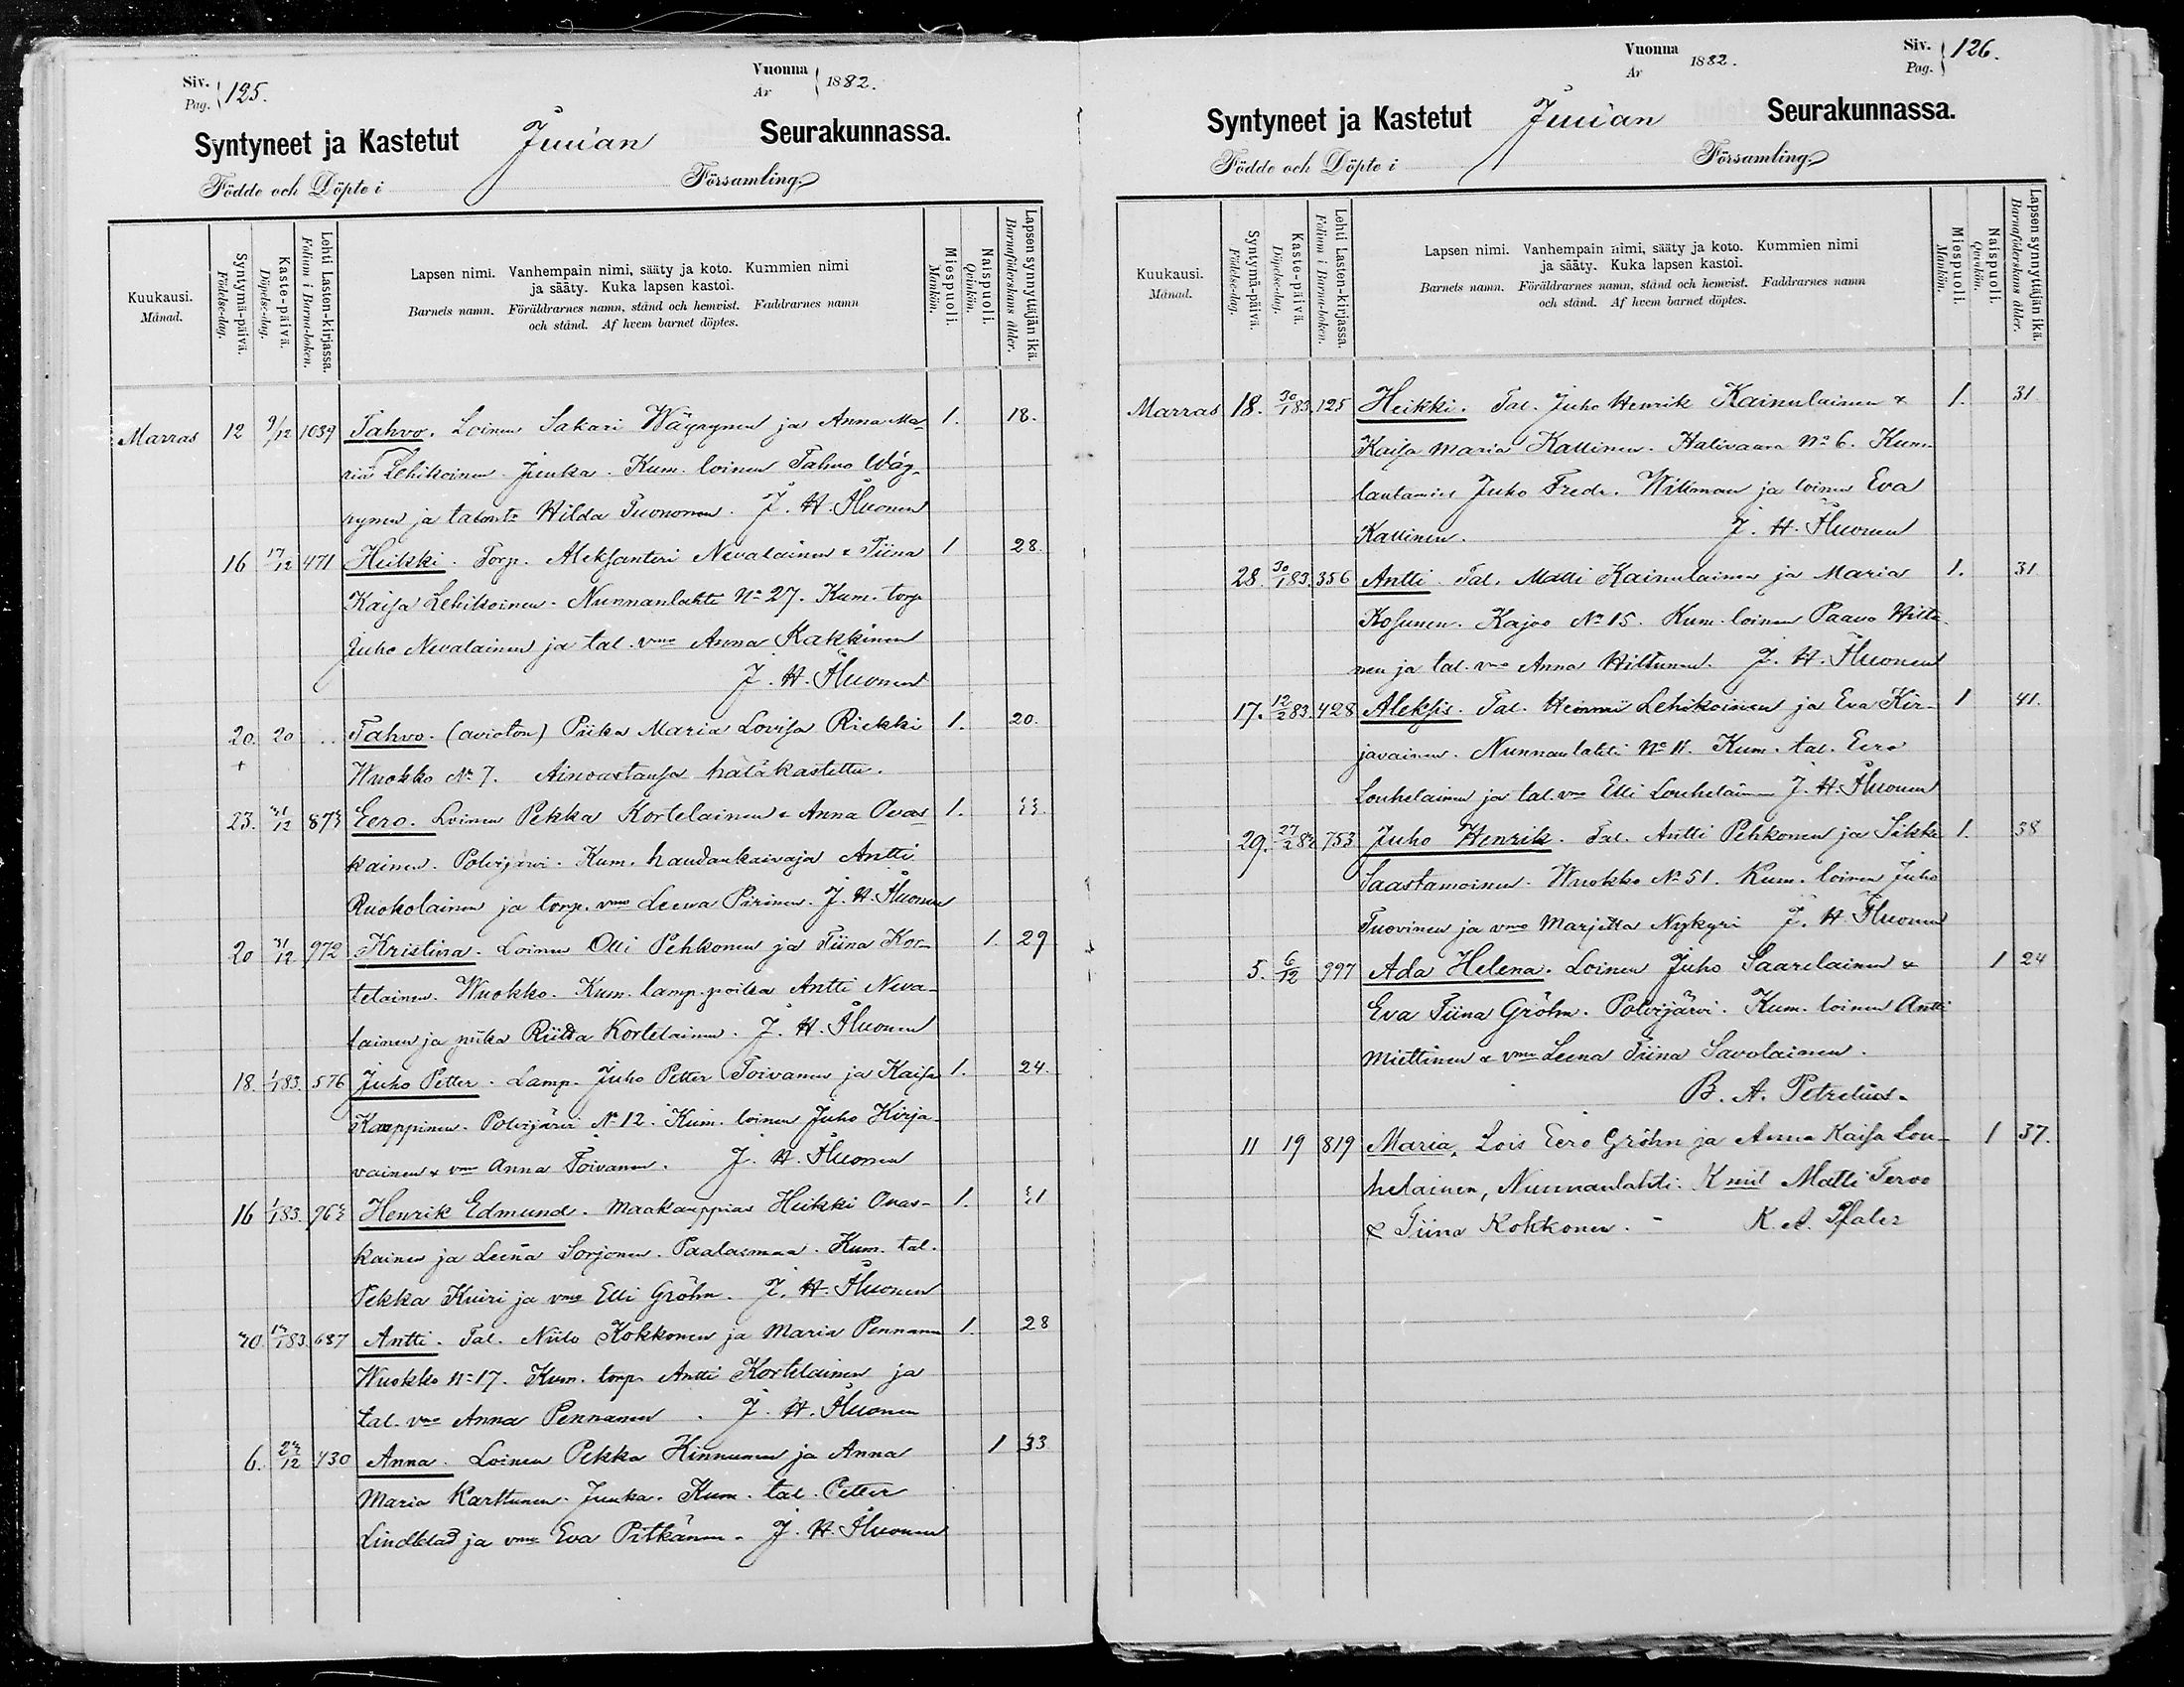 Siv.
Pag. 125.
Vuonna
Ar 1882.
Syntyneet ja Kastetut Juuan Seurakunnassa.
Födde och Döpte i Församling.
Kuukausi.
Månad.
Syntymä-päivä.
Födelse-dag.
Kaste-päivä.
Döpelse-dag.
Lehti Lasten-kirjassa.
Folium i Barna-boken.
Lapsen nimi. Vanhempain nimi, sääty ja koto. Kummien nimi
ja sääty. Kuka lapsen kastoi.
Barnets namn. Föräldrarnes namn, stånd och hemvist. Faddrarnes namn
och stånd. Af hvem barnet döptes.
Miespuoli.
Mankön.
Naispuoli.
Qvinkön.
Lapsen synnyttäjän ikä.
Barnaföderskans ålder.
Marras 12 9/12 1039 Tahvo. Loinen Sakari Wäyrynen ja Anna Ma- 1. 18.
ria Lehikoinen. Juuka. Kum. loinen Tahvo Wäy-
rynen ja Hilda Tuononen. J. H. Åhuonen
16 17/12 471 Heikki. Torp. Aleksanteri Nevalainen & Tiina 1 28.
Kaisa Lehikoinen. Nunnanlahti No 27. Kum. torp
Juho Nevalainen ja tal. vmo Anna Kakkinen
J. H. Åhuonen
20. 20 .. Tahvo. (avioton) Piika Maria Lovisa Riekki 1. 20.
+ Wuokko No 7. Ainoastansa hätäkastettu.
23. 31/12 873 Eero. Loinen Pekka Kortelainen & Anna Ovas- 1. 33.
kainen. Polvijärvi. Kum. haudankaivaja Antti
Ruokolainen ja torp. vmo Leena Piirinen. J. H. Åhuonen
20 31/12 972 Kristina. Loinen Olli Pehkonen ja Tiina Kor- 1. 29
telainen. Wuokko. Kum. lamp. poika Antti Neva-
lainen ja piika Riitta Kortelainen. J. H. Åhuonen
18. 1/1 83. 576 Juho Petter. Lamp. Juho Petter Toivanen ja Kaisa 1. 24.
Kauppinen. Polvijärvi No 12. Kum. loinen Juho Kirja-
vainen & vmo Anna Toivanen. J. H. Åhuonen
16 1/1 83. 963 Henrik Edmund. Maakauppias Heikki Ovas- 1. 31
kainen ja Leena Sorjonen. Paalasmaa. Kum. tal.
Pekka Kuiri ja vmo Elli Gröhn. J. H. Åhuonen
30. 13/1 83. 687 Antti. Tal. Niilo Kokkonen ja Maria Pennanen 1. 28
Wuokko No 17. Kum. torp. Antti Kortelainen ja
tal. vmo Anna Pennanen. J. H. Åhuonen
6. 23/12 430 Anna. Loinen Pekka Kinnunen ja Anna 1 33
Maria Karttunen. Juuka. Kum. tal. Petter
Lindblad ja vmo Eva Pitkänen. J. H. Åhuonen
Vuonna
Ar 1882.
Siv.
Pag. 126.
Syntyneet ja Kastetut Juuan Seurakunnassa.
Födde och Döpte i Församling.
Kuukausi.
Månad.
Syntymä-päivä.
Födelse-dag.
Kaste-päivä.
Döpelse-dag.
Lehti Lasten-kirjassa.
Folium i Barna-boken.
Lapsen nimi. Vanhempain nimi, sääty ja koto. Kummien nimi
ja sääty. Kuka lapsen kastoi.
Barnets namn. Föräldrarnes namn, stånd och hemvist. Faddrarnes namn
och stånd. Af hvem barnet döptes.
Miespuoli.
Mankön.
Naispuoli.
Qvinkön.
Lapsen synnyttäjän ikä.
Barnaföderskans ålder.
Marras 18. 30/1 83. 125 Heikki. Tal. Juho Henrik Kainulainen & 1. 31
Kaisa Maria Kallinen. Halivaara No 6. Kum.
lautamies Juho Fredr. Willman ja loinen Eva
Kallinen. J. H. Åhuonen
28. 30/1 83. 356 Antti. Tal. Matti Kainulainen ja Maria 1. 31
Kosunen. Kajoo No 15. Kum. loinen Paavo Hiltu-
nen ja tal. vmo Anna Hiltunen. J. H. Åhuonen
17. 12/2 83. 428 Aleksis. Tal. Lehikoinen ja Eva Kir- 1 41.
javainen. Nunnanlahti No 11. Kum. tal. Eero
Louhelainen ja tal. vmo Elli Louhelainen J. H. Åhuonen
29. 27/2 83 753 Juho Henrik. Tal. Antti Pehkonen ja Sikke 1. 38
Saastamoinen. Wuokko No 51. Kum. loinen Juho
Tuovinen ja vmo Marjetta Nykyri J. H. Åhuonen
5. 6/12 997 Ada Helena. Loinen Juho Saarelainen & 1 24
Eva Tiina Gröhn. Polvijärvi. Kum. loinen Antti
Miettinen & vmo Leena Tiina Savolainen.
B. A. Petrelius.
11 19 819 Maria, Lois Eero Gröhn ja Anna Kaisa Lou- 1 37.
helainen, Nunnanlahti. Kmit Matti Tervo
& Tiina Kokkonen. - K. A. Pfaler